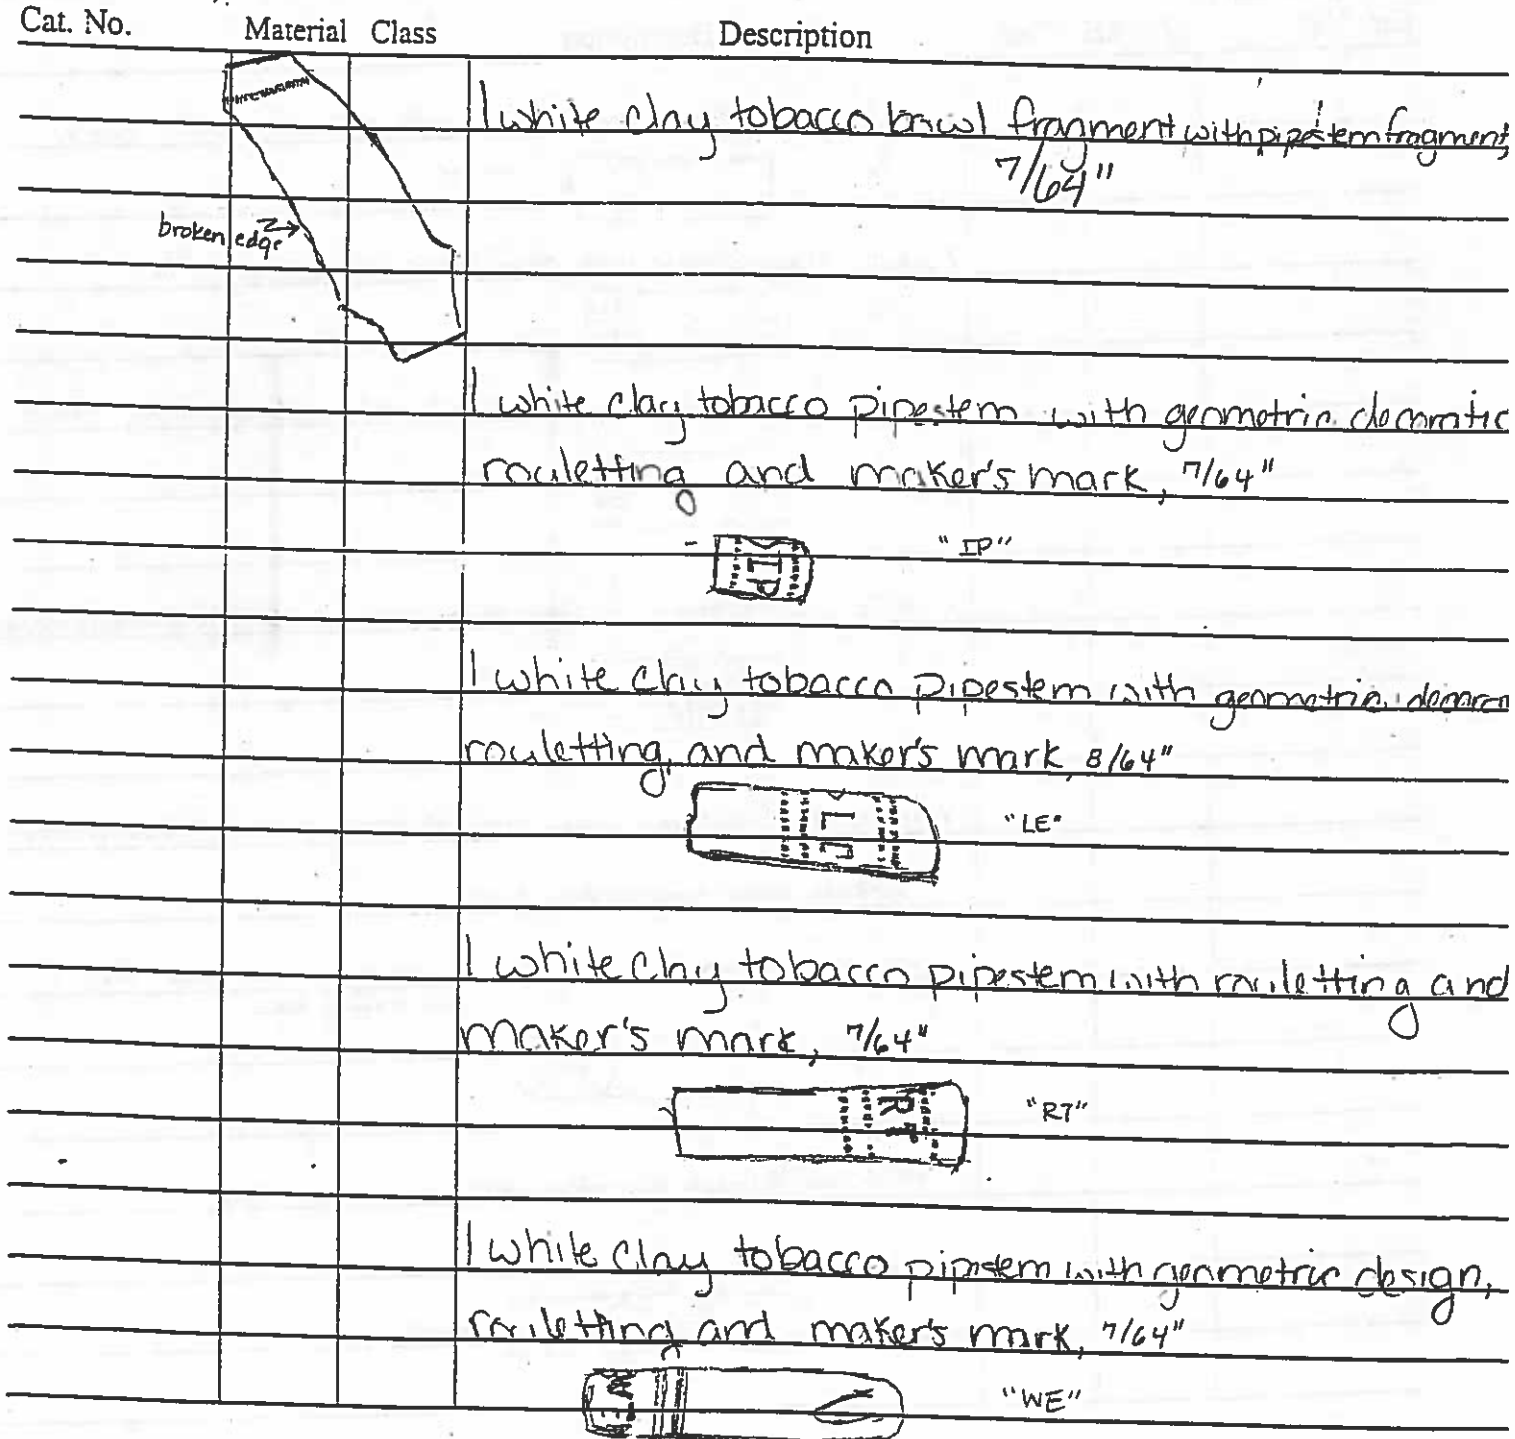 Cat. No. Material Class Description
1 white clay tobacco bowl fragment with pipestem fragment,
7/64"
broken edge
1 white clay tobacco pipestem with geometric decoratic
rouletting and maker's mark, 7/64"
IP "IP"
1 white clay tobacco pipestem with geometric decora
rouletting, and maker's mark, 8/64"
LE "LE"
1 white clay tobacco pipestem with rouletting and
maker's mark, 7/64"
RT "RT"
1 white clay tobacco pipestem with geometric design,
rouletting and maker's mark, 7/64"
WE "WE"